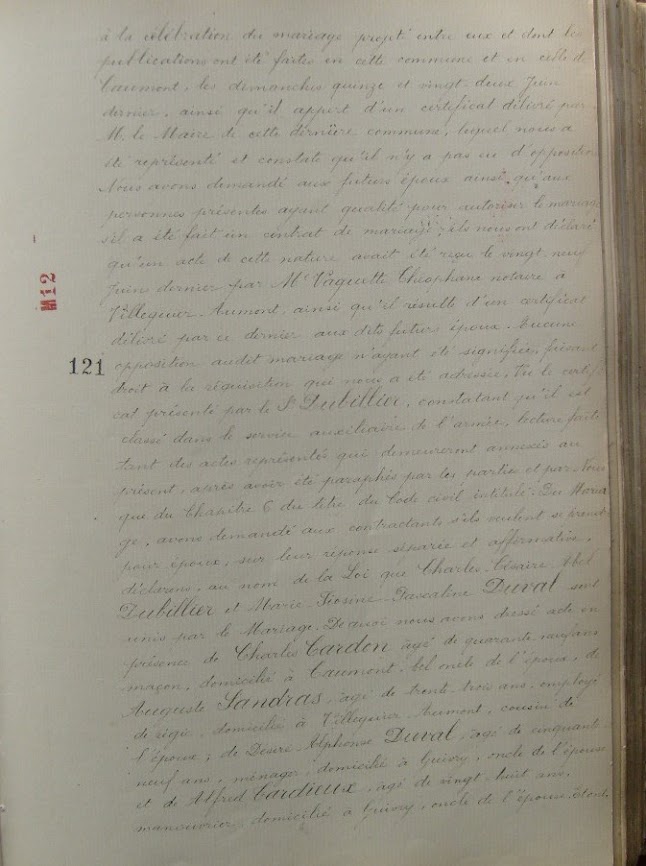 à la célébration du mariage projeté entre eux et dont les
publications ont été faites en cette commune et en celle de
Caumont, les dimanches quinze et vingt-deux Juin
dernier, ainsi qu'il appert d'un certificat délivré par
M. le Maire de cette dernière commune, lequel nous a
été représenté et constate qu'il n'y a pas eu d'opposition
Nous avons demandé aux futurs époux ainsi qu'aux
personnes présentes ayant qualité pour autoriser le mariage
s'il a été fait un contrat de mariage; ils nous ont déclaré
qu'un acte de cette nature avait été reçu le vingt-neuf
Juin dernier par Me Vaquette Théophane notaire à
Villequier-Aumont, ainsi qu'il résulte d'un certificat
délivré par ce dernier aux dits futurs époux. Aucune
M12
121
opposition audit mariage n'ayant été signifiée, faisant
droit à la réquisition qui nous a été adressée, Vu le certifi
cat présenté par le Sr Dubillier, constatant qu'il est
classé dans le service auxiliaire de l'armée, lecture faite
tant des actes représentés qui demeureront annexés au
présent, après avoir été paraphés par les parties et par Nous
que du Chapitre 6 du titre du Code civil intitulé: Du Maria
ge, avons demandé aux contractants s'ils veulent se prendre
pour époux, sur leur réponse séparée et affirmative,
déclarons, au nom de la Loi que Charles-Césaire-Abel
Dubillier et Marie Pascaline Duval sont
unis par le Mariage. De quoi nous avons dressé acte en
présence de Charles Cardon âgé de quarante-neuf ans
maçon, domicilié à Caumont, bel oncle de l'époux, de
Auguste Sandras, âgé de trente-trois ans, employé
de régie, domicilié à Villequier-Aumont, cousin de
l'époux; de Désiré-Alphonse Duval, âgé de cinquante
neuf ans, ménager, domicilié à Guivry, oncle de l'épouse
et de Alfred Cardieux, âgé de vingt-huit ans,
manouvrier, domicilié à Guivry, oncle de l'épouse